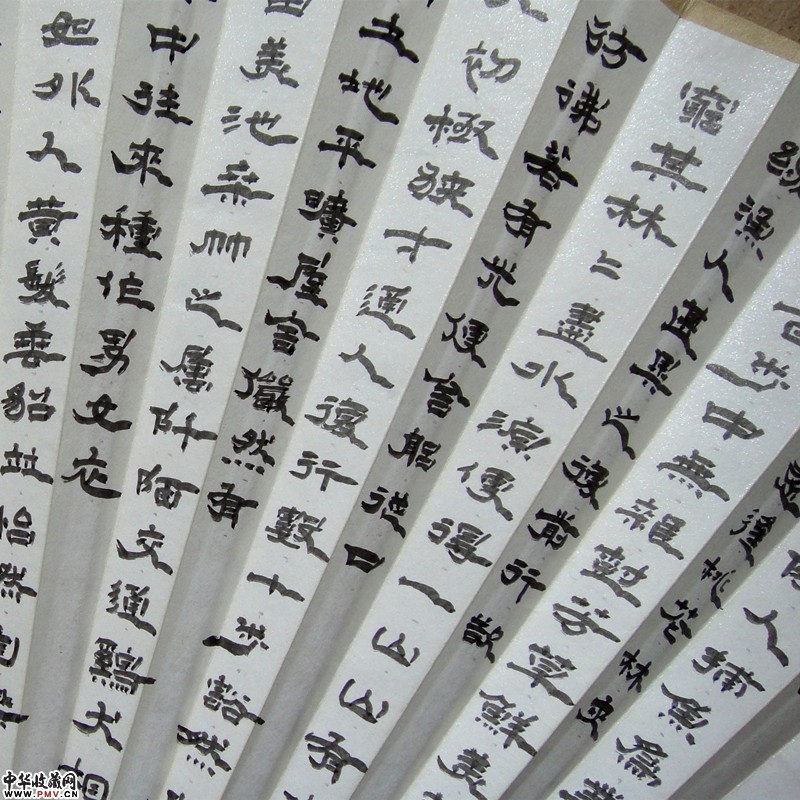 人捕魚為業
逢桃花林夾
百步中無雜樹芳草鮮美
紛漁人甚異之復前行欲
窮其林二盡水源便得一山山有
彷彿若有光便舍船從口
入初極狹才通人復行數十步豁然
土地平曠屋舍儼然有
田美池桑竹之屬阡陌交通雞犬相
中往來種作男女衣
如外人黃髮垂髫並怡然自
中华收藏网
www.PMV.CN